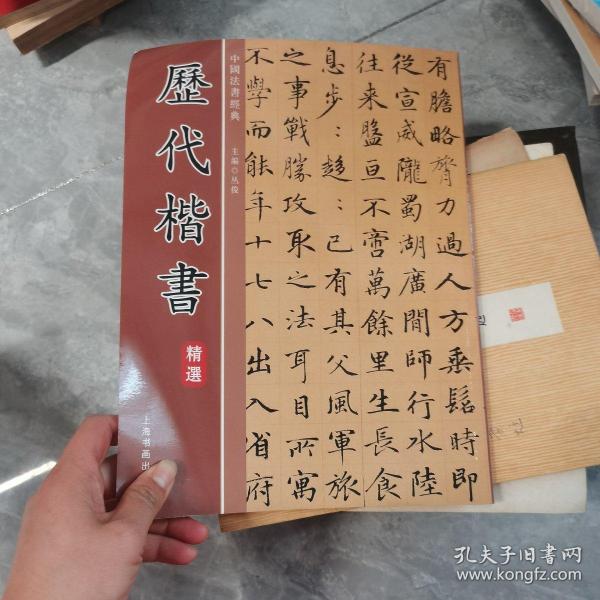 歷代楷書
精選
中國法書經典
主編◎丛俊
上海书画出
有膽略膂力過人方垂髫時即
從宣威隴蜀湖廣間師行水陸
往来盬亘不啻萬餘里生長食
息步：趨：已有其父風軍旅
之事戰勝攻取之法耳目所寓
不學而能年十七八出入省府
孔夫子旧书网
www.kongfz.com